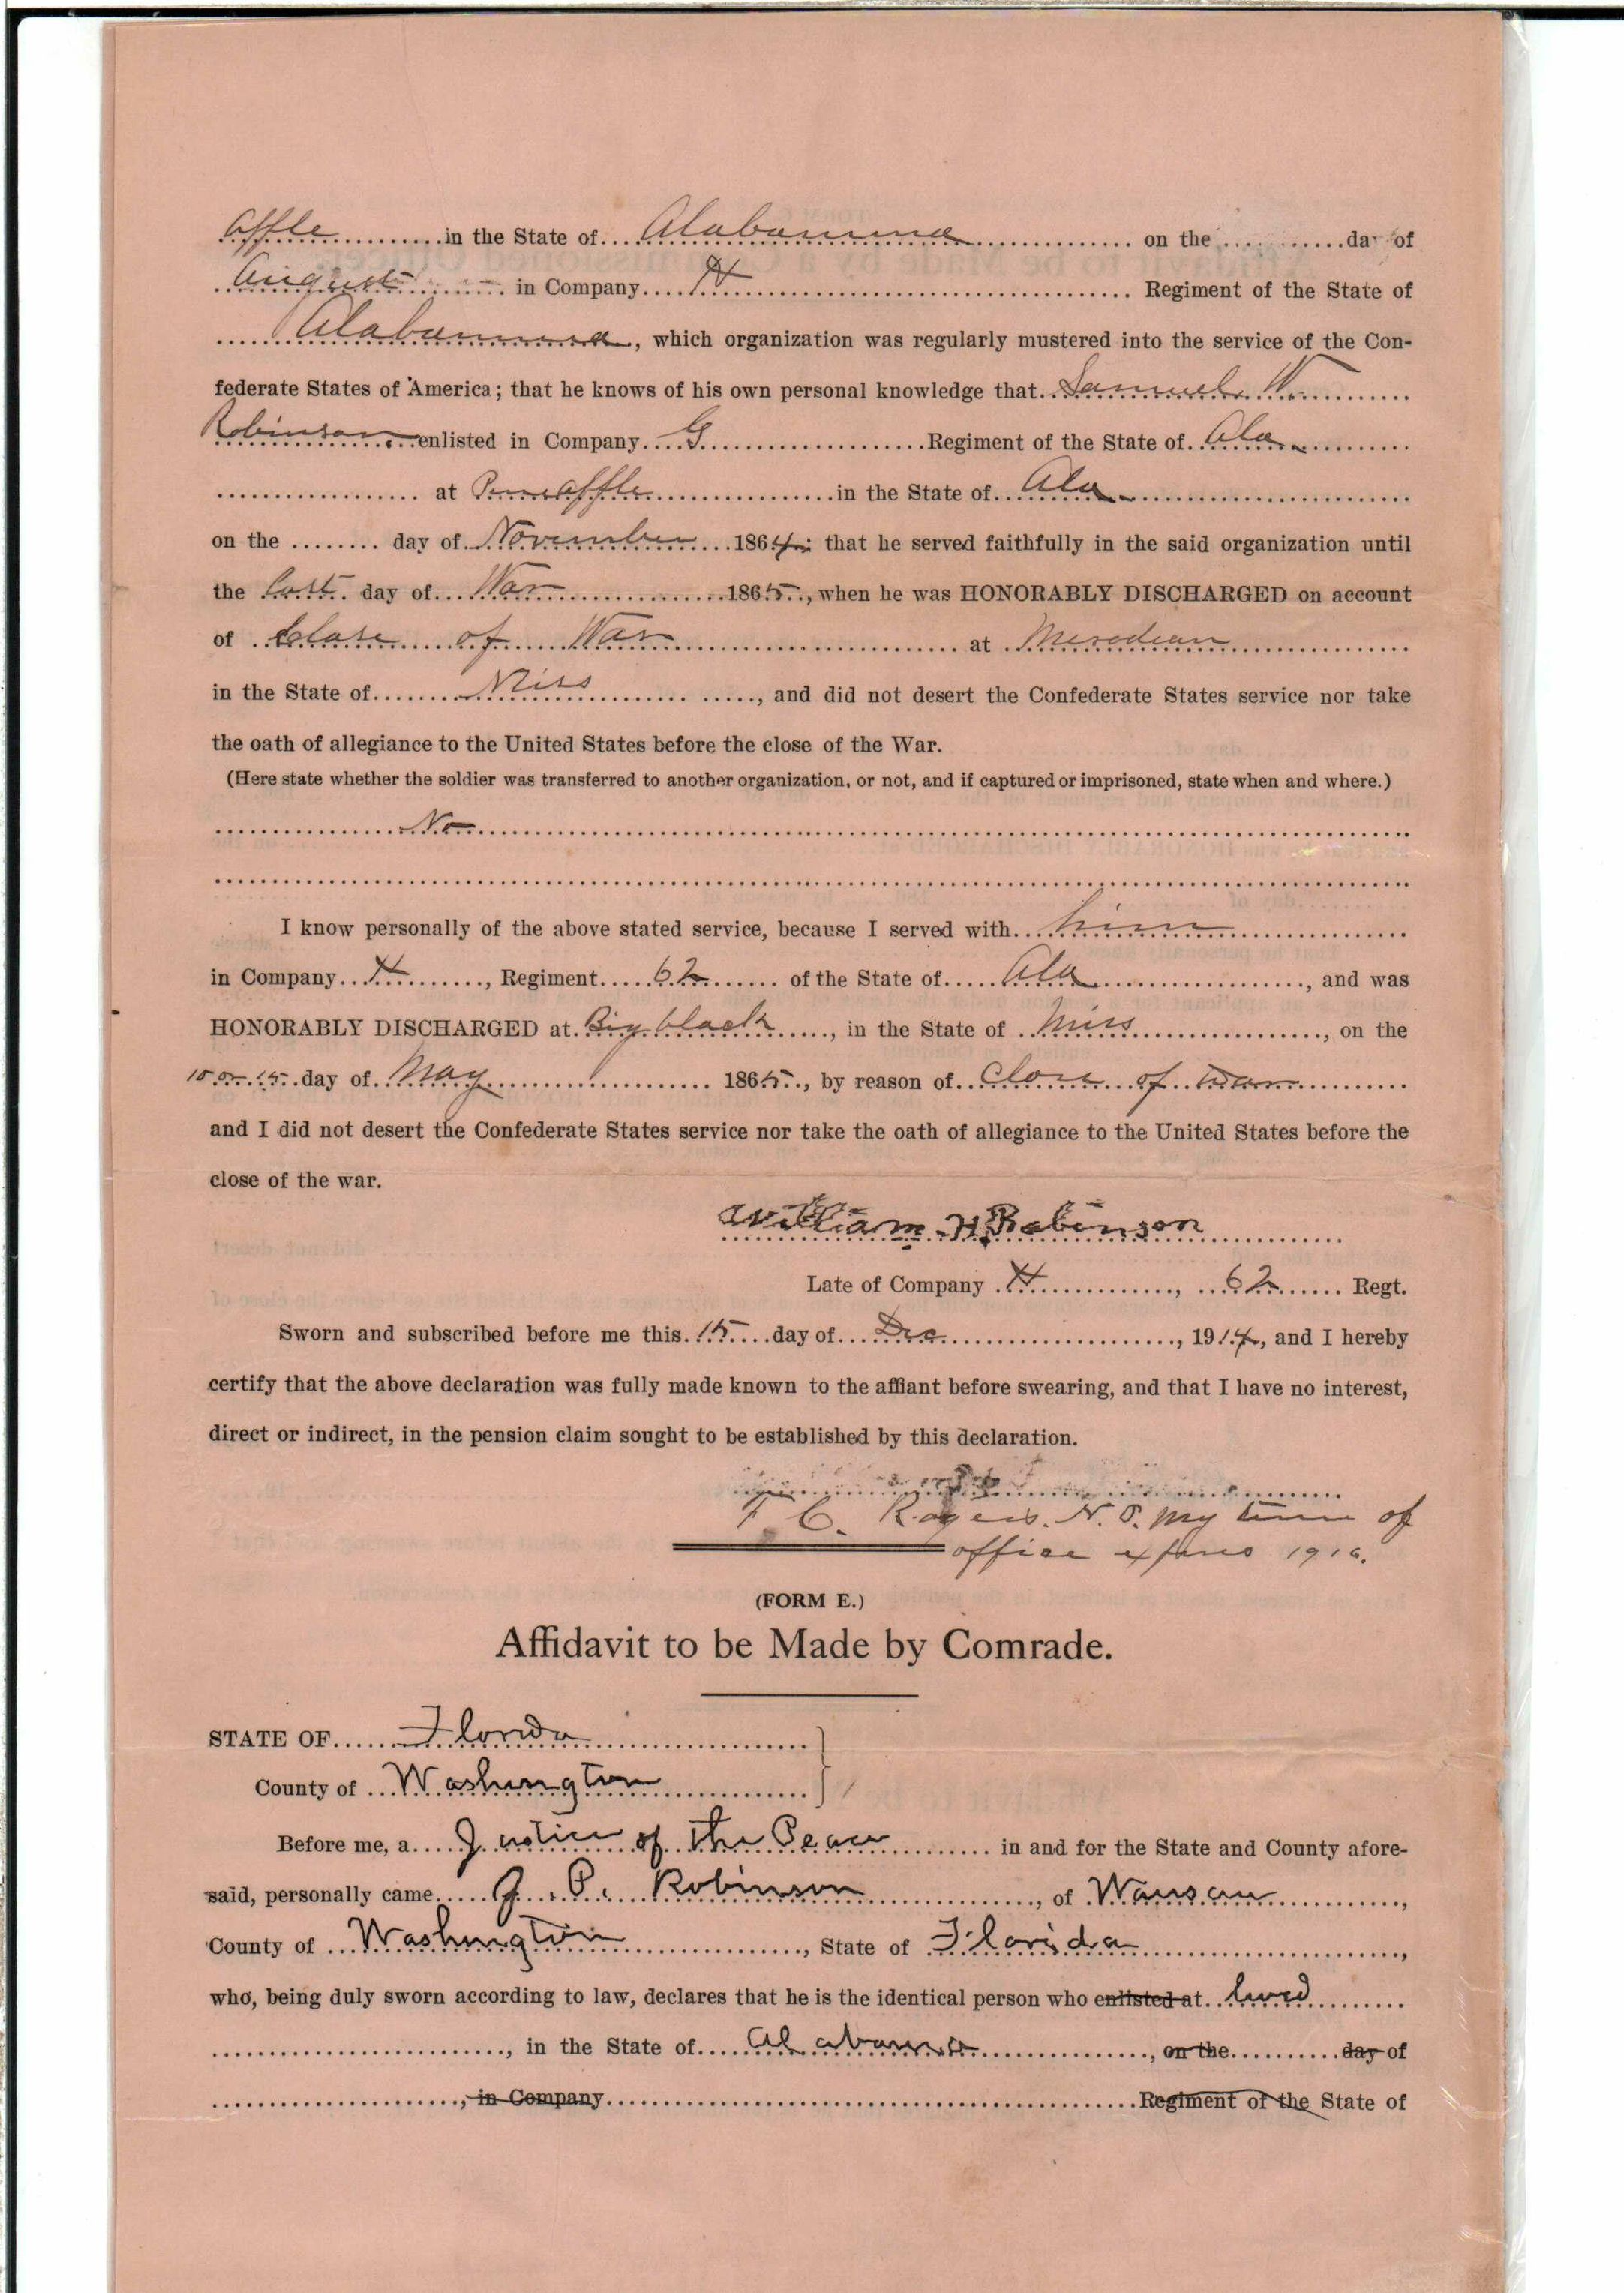 Affle in the State of Alabamma on the day of
August in Company H Regiment of the State of
Alabamma, which organization was regularly mustered into the service of the Con-
federate States of America; that he knows of his own personal knowledge that Samuel W.
Robinson enlisted in Company G Regiment of the State of Ala
at in the State of Ala
on the day of November 1864; that he served faithfully in the said organization until
the last day of War 1865, when he was HONORABLY DISCHARGED on account
of Close of War at Merodean
in the State of Miss, and did not desert the Confederate States service nor take
the oath of allegiance to the United States before the close of the War.
(Here state whether the soldier was transferred to another organization, or not, and if captured or imprisoned, state when and where.)
No
I know personally of the above stated service, because I served with him
in Company H, Regiment 62 of the State of Ala, and was
HONORABLY DISCHARGED at Big black, in the State of Miss, on the
10 or 15 day of May 1865, by reason of Close of war
and I did not desert the Confederate States service nor take the oath of allegiance to the United States before the
close of the war.
William H Robinson
Late of Company H, 62 Regt.
Sworn and subscribed before me this 15 day of Dec, 1914, and I hereby
certify that the above declaration was fully made known to the affiant before swearing, and that I have no interest,
direct or indirect, in the pension claim sought to be established by this declaration.
T. C. Rogers. N. P. My time of
office expires 1916.
(FORM E.)
Affidavit to be Made by Comrade.
STATE OF Florida
County of Washington
Before me, a Justice of the Peace in and for the State and County afore-
said, personally came J. P. Robinson, of Wausau,
County of Washington, State of Florida,
who, being duly sworn according to law, declares that he is the identical person who enlisted at lived
, in the State of Alabama, on the day of
, in Company Regiment of the State of